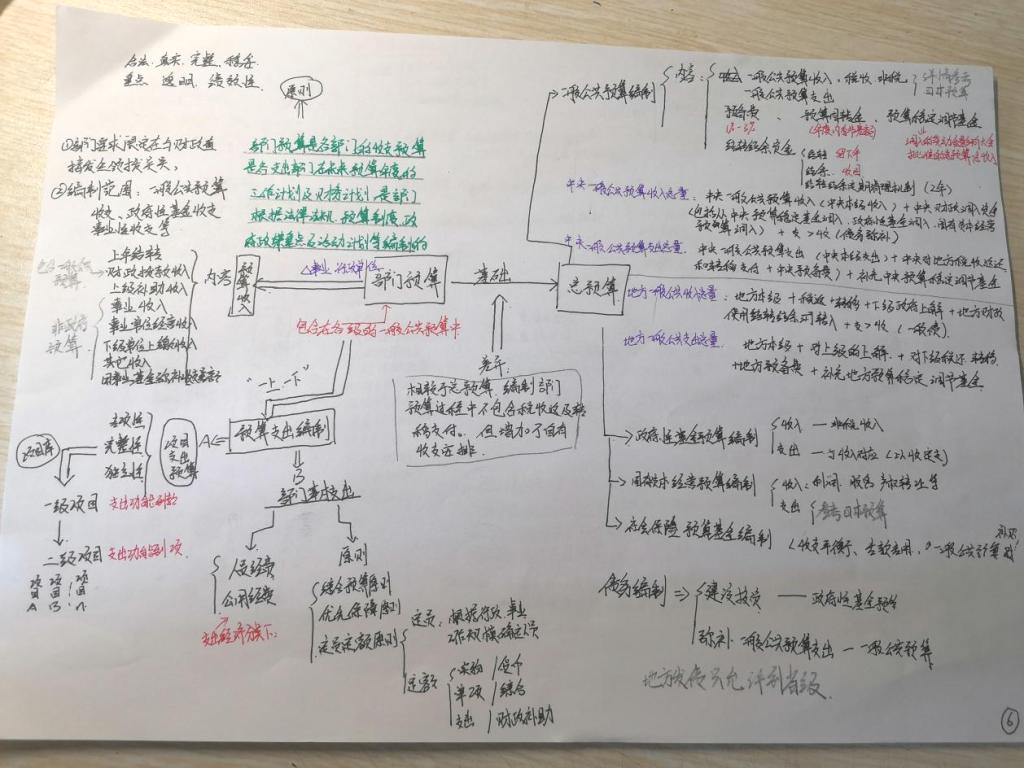 合法、真实、完整、稳妥
重点、透明、绩效性
原则
①部门要求限定在与财政直
接发生领拨关系
②编制范围：一般公共预算
收支、政府性基金收支
事业性收支等
部门预算是各部门的收支预算
是各支出部门在未来预算年度的
工作计划及财务计划 是部门
根据法律法规、预算制度、政
府政策重点及活动计划等编制的
上年结转
财政拨款收入
上级补助收入
事业收入
事业单位经营收入
下级单位上缴收入
其它收入
用事业基金弥补收支差额
非财政
预算
内容
预算收入
△事业、行政单位
部门预算
包含在各级的一般公共预算中
基础
总预算
差异：
相较于总预算，编制部门
预算过程中不包含税收返还及转
移支付。但增加了自有
收支安排
"一上一下"
预算支出编制
A
项目支出预算
专项性
完整性
独立性
项目库
一级项目 支出功能到款
二级项目 支出功能到项
项目A
项目B
B
部门基本支出
人员经费
公用经费
支出经济分类下
原则
综合预算原则
优先保障原则
定员定额原则
定员：根据行政、事业
工作规模确定人员
定额
实物/
单项/综合
支出/财政补助
一般公共预算编制
内容：
一般公共预算收入、税收、非税
一般公共预算支出
预备费、预算周转金、预算稳定调节基金
结转结余资金
结转
结余 收回
结转结余定期清理机制（2年）
中央一般公共预算收入总量：中央一般公共预算收入（中央本级收入）+中央财政调入资金
（包括从中央预算稳定基金调入、政府性基金调入、国有资本经营
预算调入）+支>收（债务弥补）
中央一般公共预算支出总量：中央一般公共预算支出（中央本级支出）+中央对地方税收返还
和转移支付+中央预备费+补充中央预算稳定调节基金
地方一般公共收入总量：地方本级+税返+转移+下级政府上解+地方财政
使用结转结余调转入+支>收（一般债）
地方一般公共支出总量：地方本级+对上级的上解+对下级税还转移
+地方预备费+补充地方预算稳定调节基金
政府性基金预算编制
收入—非税收入
支出—与收入对应（以收定支）
国有资本经营预算编制
收入：利润、股息、产权转让等
支出
社会保险预算基金编制
（收支平衡、专款专用，
债务编制
建设投资——政府性基金预算
弥补一般公共预算支出——一般公共预算
地方发债只允许到省级
⑥